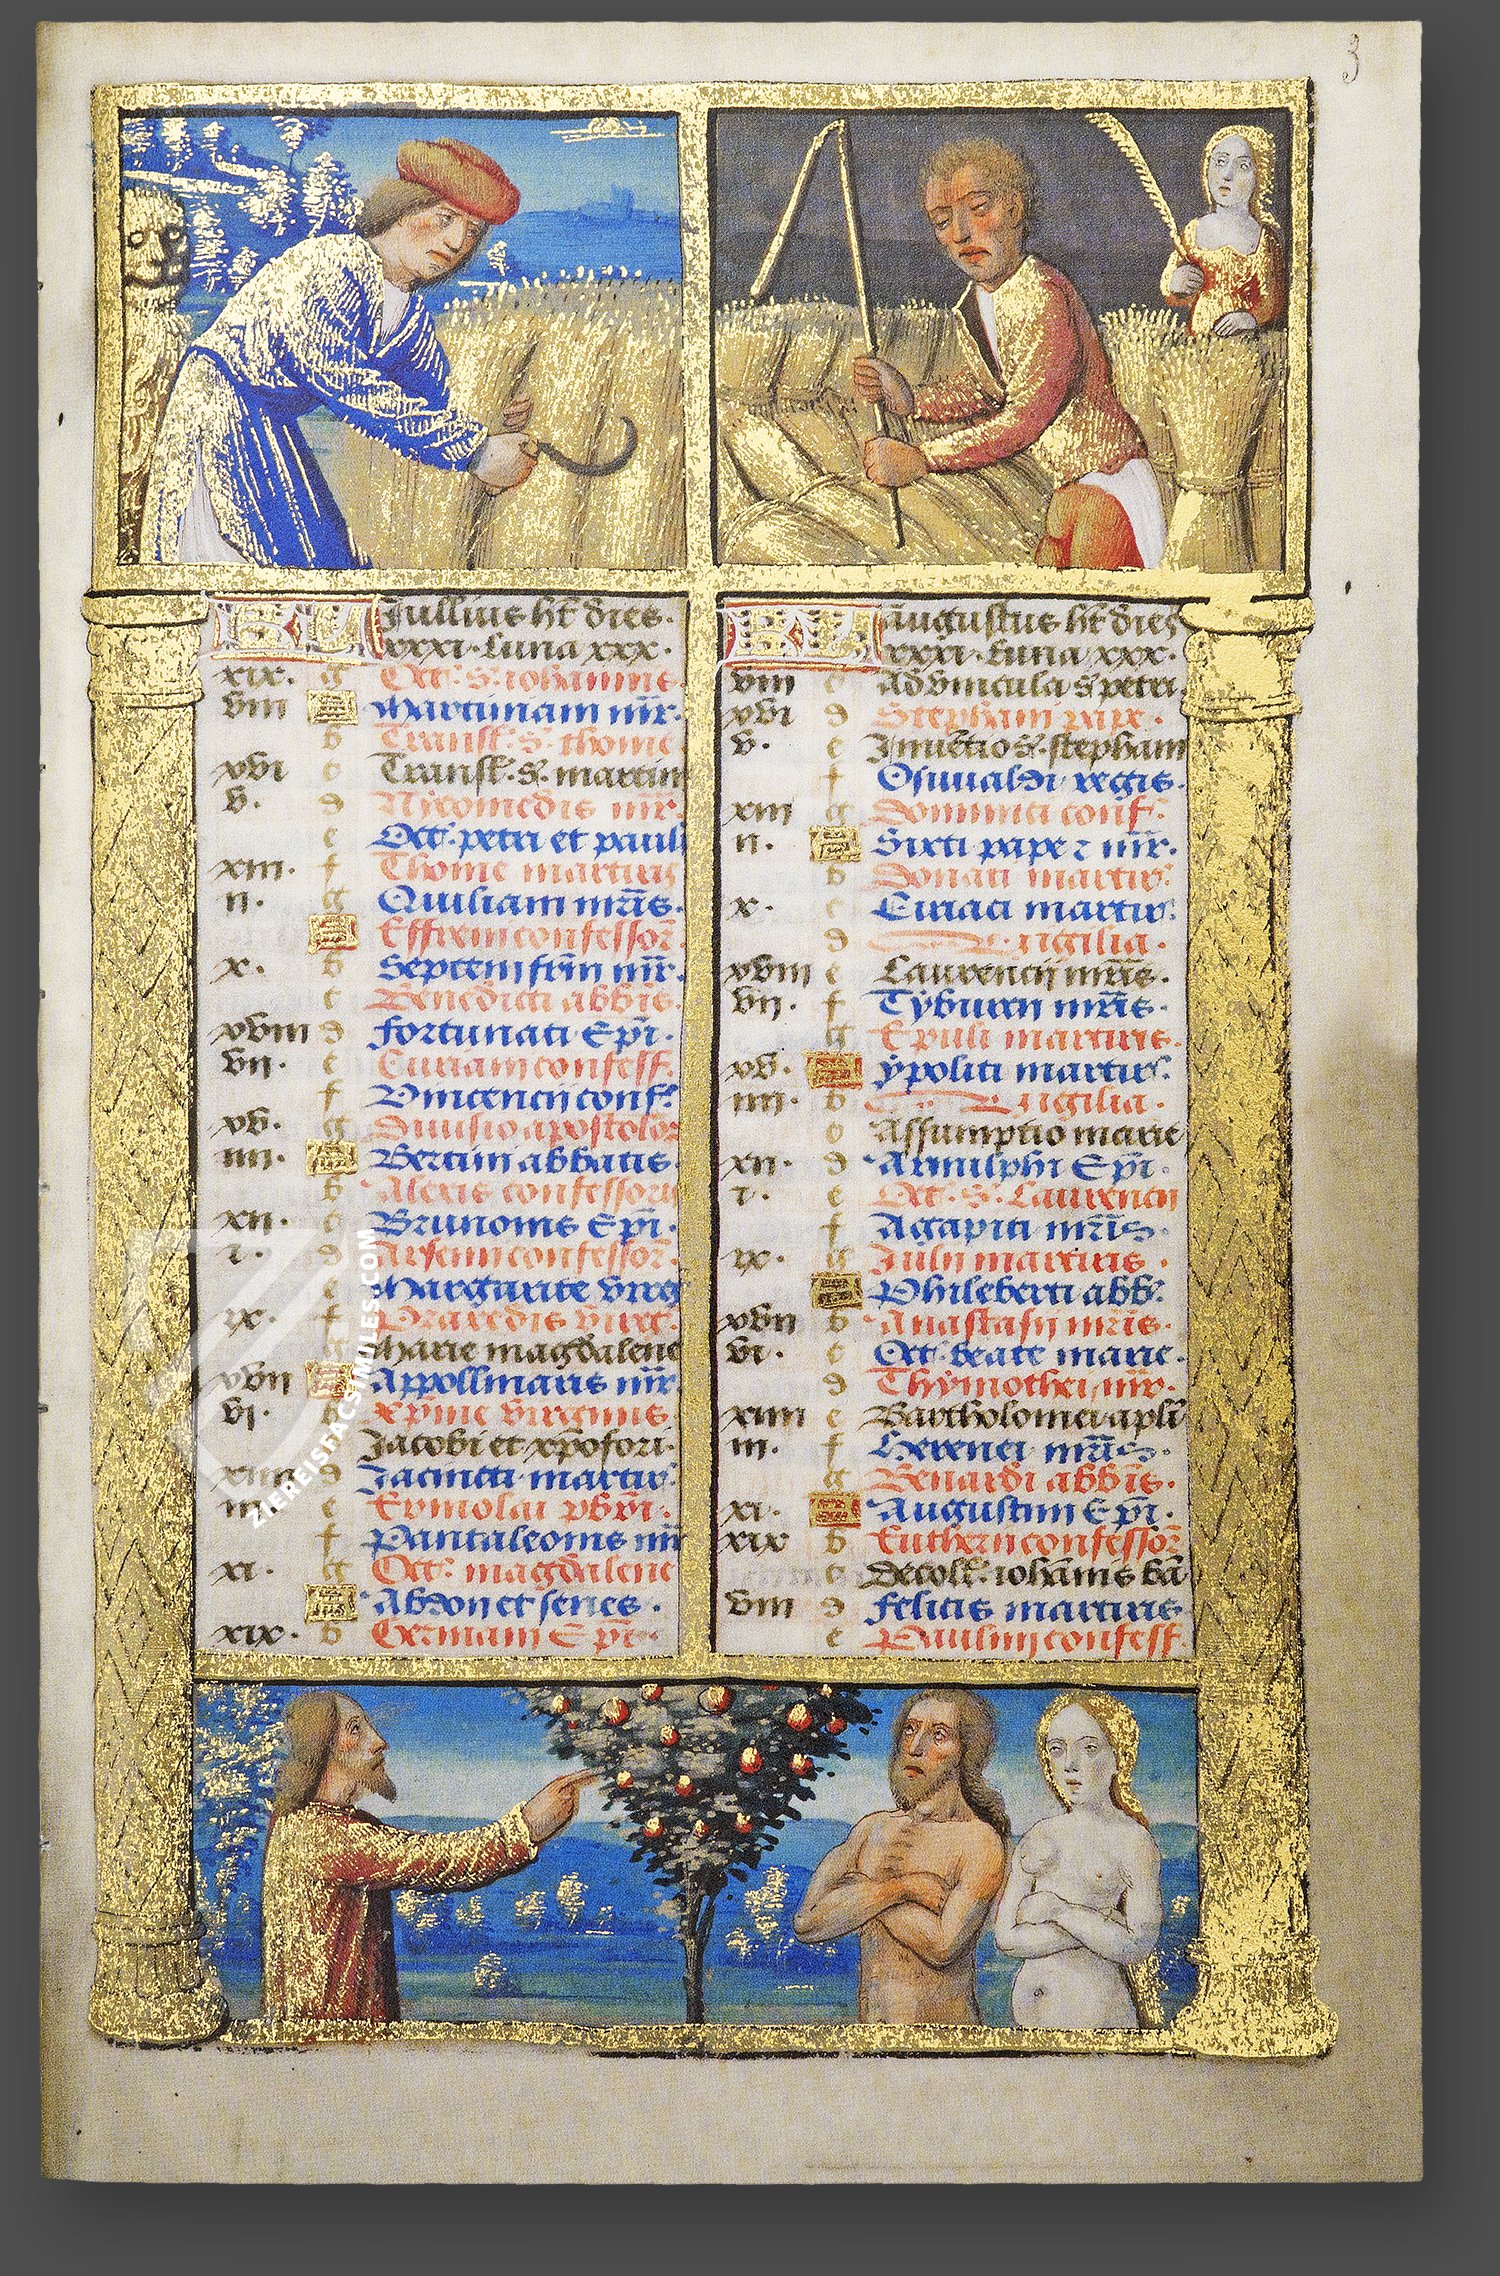 3
KL Jullius ht dies.
xxxi. Luna xxx.
xix. g Oct. S. iohannis
viii A Martiniani mr.
b Transl. S. thome
xvi c Transl. S. martini
v. d Nycomedis mr.
e Oct. petri et pauli
xiii. f Thome martiris
ii. g Quiliani mris.
A Effrem confessor
x. b Septem frm mr.
c Benedicti abbis
xviii d fortunati Epi.
vii. e Curiani confess.
f Vincencii conf.
xv. g Divisio apostolor
iiii. A Bertini abbatis
b Alexis confessoris
xii. c Brunonis Epi.
i. d Arsenii confessor.
e Margarite virg
ix. f Praxedis virg.
g Marie magdalene
xvii A Appollinaris mr
vi. b xpine virginis
c Jacobi et xpofori.
xiiii d Jacincti martir.
iii e Ermolai pbri.
f Pantaleonis mr
xi. g Oct. magdalene
A Abdon et senes.
xix. b Germani Epi.
KL augustus ht dies
xxxi. Luna xxx.
viii c Ad vincula S petri.
xvi d Stephani pape.
v. e Inuetio S. stephani
f Osuualdi regis.
xiii g Dominici conf.
ii. A Sixti pape z mr.
b Donati martir.
x. c Ciriaci martir.
d Vigilia.
xviii e Laurencii mris.
vii. f Tyburcii mris.
g Epuli martiris.
xv. A ypoliti martir.
iiii. b Vigilia.
c Assumptio marie
xii. d Arnulphi Epi.
i. e Oct. S. Laurencii
f Agapiti mris.
ix. g Julii martiris.
A Phileberti abb.
xvii b Anastasii mris.
vi. c Oct. beate marie.
d Thymothei mr.
xiiii e Bartholomei apli
iii. f Herenei mris.
g Benardi abbis.
xi. A Augustini Epi.
xix b Eutherii confessor
c Decoll. iohanis ba
viii d felicis martiris
e Paulini confess.
ZIEREISFACSIMILES.COM